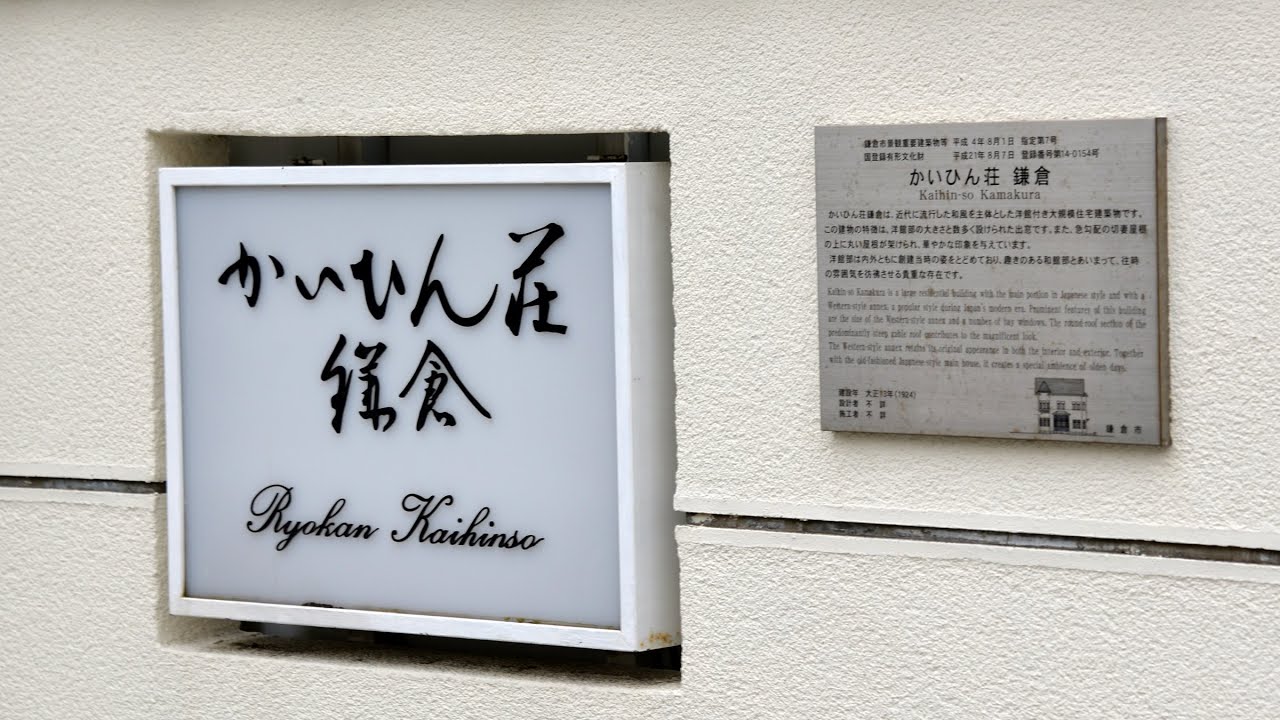 かいひん荘
鎌倉
Ryokan Kaihinso
鎌倉市景観重要建築物等 平成 4年8月1日 指定第7号
国登録有形文化財 平成21年8月7日 登録番号第14-0154号
かいひん荘 鎌倉
Kaihin-so Kamakura
かいひん荘鎌倉は、近代に流行した和風を主体とした洋館付き大規模住宅建築物です。
この建物の特徴は、洋館部の大きさと数多く設けられた出窓です。また、急勾配の切妻屋根
の上に丸い屋根が架けられ、華やかな印象を与えています。
洋館部は内外ともに創建当時の姿をとどめており、趣きのある和館部とあいまって、往時
の雰囲気を彷彿させる貴重な存在です。
Kaihin-so Kamakura is a large residential building with the main portion in Japanese style and with a
Western-style annex, a popular style during Japan's modern era. Prominent features of this building
are the size of the Western-style annex and a number of bay windows. The round-roof section of the
predominantly steep gable roof contributes to the magnificent look.
The Western-style annex retains its original appearance in both the interior and exterior. Together
with the old-fashioned Japanese-style main house, it creates a special ambience of olden days.
建設年 大正13年(1924)
設計者 不 詳
施工者 不 詳
鎌倉市